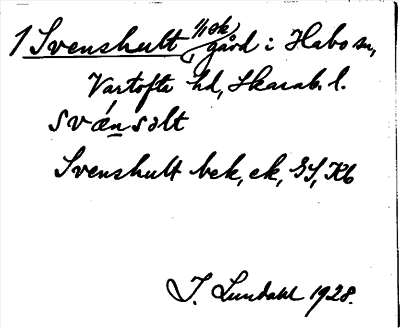 1 Svenshult, 1/1 sk, gård i Habo sn,
Vartofte hd, Skarab. l.
svǽnsolt
Svenshult bek, ek, GS, Kb
I. Lundahl 1928.